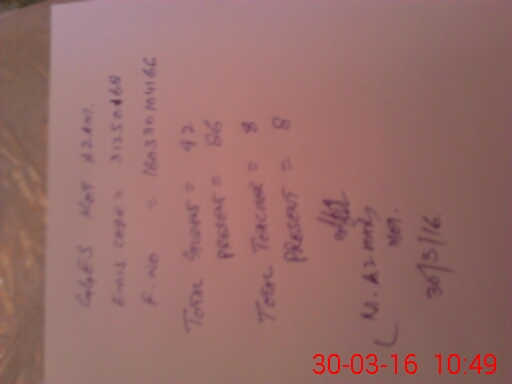 GGES KOT AZAM.
EMIS CODE = 31250168
F. NO = 160330104166
TOTAL STUDENT = 92
PRESENT = 86
TOTAL TEACHER = 8
PRESENT = 8
M. AZ
30/3/16
30-03-16 10:49